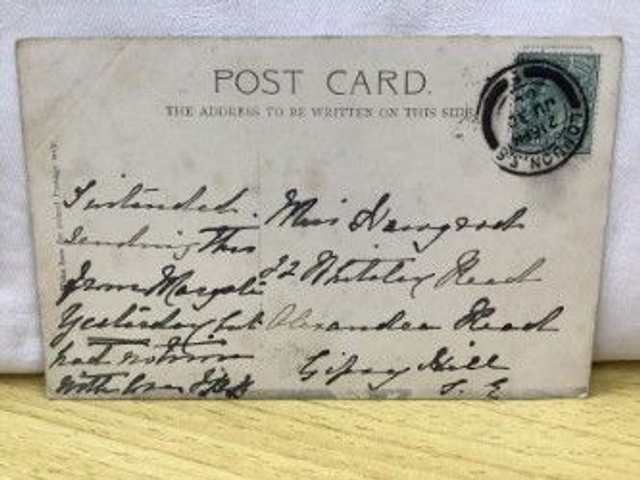 POST CARD.
THE ADDRESS TO BE WRITTEN ON THIS SIDE
LONDON, S.E
2 15 PM
JU
I intended
sending This
from Margate
Yesterday but
had not time
with love
Miss
32 Whiteley Road
Alexandra Road
Gipsy Hill
S. E